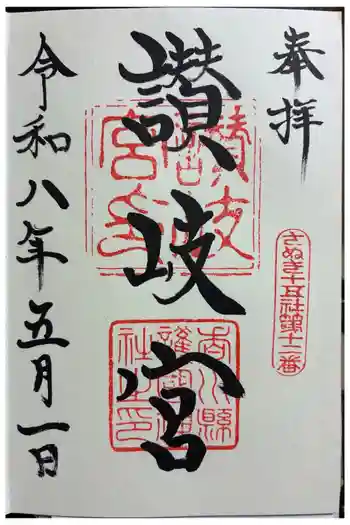 奉拝
讃岐宮
令和八年五月一日
さぬき十五社第十二番
香川縣護國神社之印